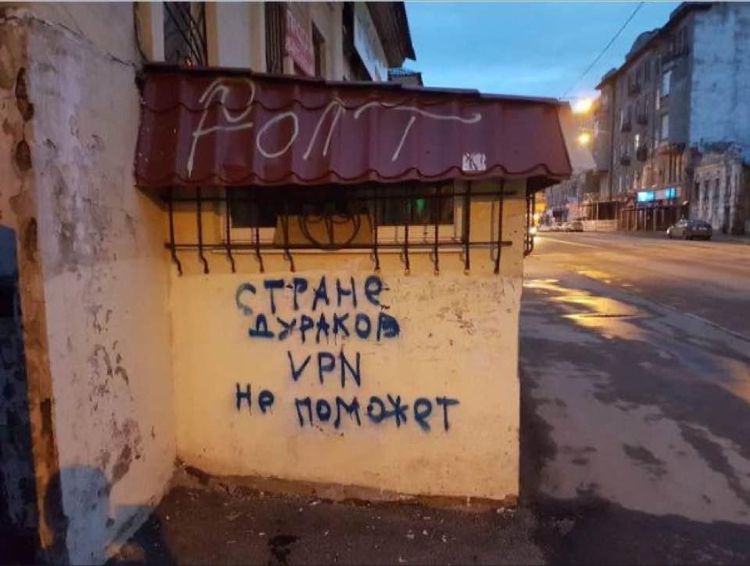 РОЛТ
СТРАНе
ДУРАКОВ
VPN
Не ПОМОЖЕТ